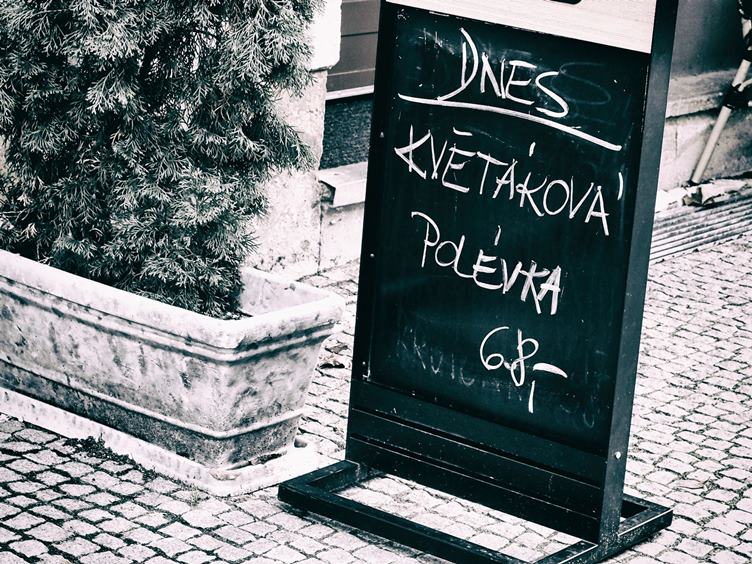 DNES
KVĚTÁKOVÁ
POLÉVKA
68,-